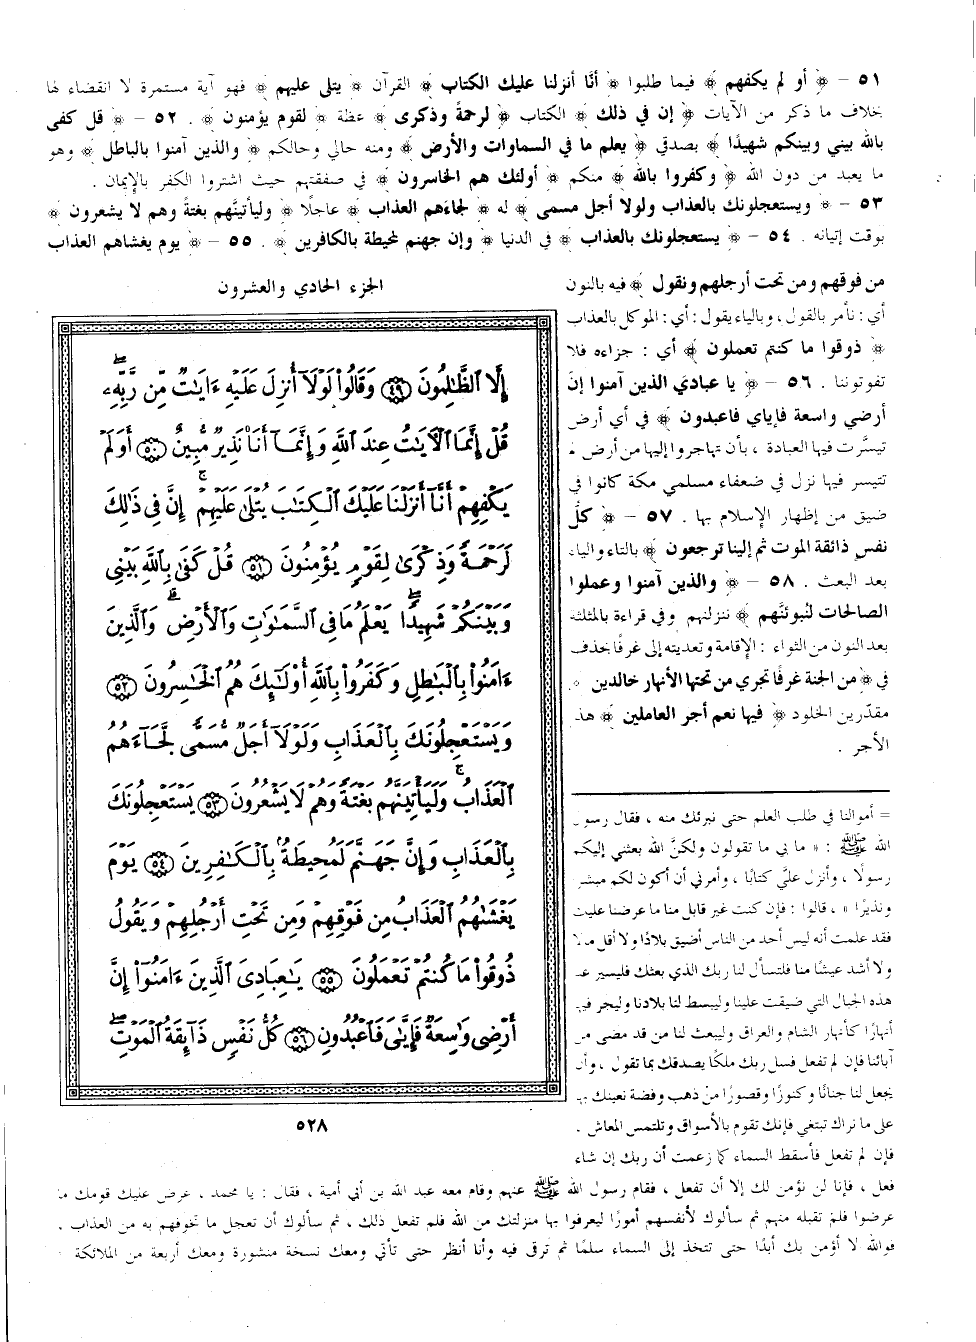 ٥١ – ﴿ أو لم يكفهم ﴾ فيما طلبوا ﴿ أنّا أنزلنا عليك الكتاب ﴾ القرآن ﴿ يتلى عليهم ﴾ فهو آية مستمرة لا انقضاء لها
بخلاف ما ذكر من الآيات ﴿ إن في ذلك ﴾ الكتاب ﴿ لرحمةً وذكرى ﴾ عظة ﴿ لقوم يؤمنون ﴾ . ٥٢ – ﴿ قل كفى
بالله بيني وبينكم شهيدًا ﴾ بصدقي ﴿ يعلم ما في السماوات والأرض ﴾ ومنه حالي وحالكم ﴿ والذين آمنوا بالباطل ﴾ وهو
ما يعبد من دون الله ﴿ وكفروا بالله ﴾ منكم ﴿ أولئك هم الخاسرون ﴾ في صفقتهم حيث اشتروا الكفر بالإيمان .
٥٣ – ﴿ ويستعجلونك بالعذاب ولولا أجل مسمى ﴾ له ﴿ لجاءهم العذاب ﴾ عاجلًا ﴿ وليأتينَّهم بغتةً وهم لا يشعرون ﴾
بوقت إتيانه . ٥٤ – ﴿ يستعجلونك بالعذاب ﴾ في الدنيا ﴿ وإن جهنم لمحيطة بالكافرين ﴾ . ٥٥ – ﴿ يوم يغشاهم العذاب
من فوقهم ومن تحت أرجلهم ونقول ﴾ فيه بالنون
أي : نأمر بالقول ، وبالياء يقول : أي : الموكل بالعذاب
﴿ ذوقوا ما كنتم تعملون ﴾ أي : جزاءه فلا
تفوتوننا . ٥٦ – ﴿ يا عبادي الذين آمنوا إنَّ
أرضي واسعة فإياي فاعبدون ﴾ في أي أرض
تيسَّرت فيها العبادة ، بأن تهاجروا إليها من أرض لم
تتيسر فيها نزل في ضعفاء مسلمي مكة كانوا في
ضيق من إظهار الإسلام بها . ٥٧ – ﴿ كلّ
نفس ذائقة الموت ثم إلينا ترجعون ﴾ بالتاء والياء
بعد البعث . ٥٨ – ﴿ والذين آمنوا وعملوا
الصالحات لنبوئنَّهم ﴾ ننزلنهم وفي قراءة بالمثلثة
بعد النون من الثواء : الإقامة وتعديته إلى غرفًا بحذف
في ﴿ من الجنة غرفًا تجري من تحتها الأنهار خالدين ﴾
مقدّرين الخلود ﴿ فيها نعم أجر العاملين ﴾ هذا
الأجر .
الجزء الحادي والعشرون
إِلَّا ٱلظَّٰلِمُونَ ٤٩ وَقَالُوا۟ لَوْلَآ أُنزِلَ عَلَيْهِ ءَايَٰتٌ مِّن رَّبِّهِۦ
قُلْ إِنَّمَا ٱلْءَايَٰتُ عِندَ ٱللَّهِ وَإِنَّمَآ أَنَا۠ نَذِيرٌ مُّبِينٌ ٥٠ أَوَلَمْ
يَكْفِهِمْ أَنَّآ أَنزَلْنَا عَلَيْكَ ٱلْكِتَٰبَ يُتْلَىٰ عَلَيْهِمْ ۚ إِنَّ فِى ذَٰلِكَ
لَرَحْمَةً وَذِكْرَىٰ لِقَوْمٍ يُؤْمِنُونَ ٥١ قُلْ كَفَىٰ بِٱللَّهِ بَيْنِى
وَبَيْنَكُمْ شَهِيدًا ۖ يَعْلَمُ مَا فِى ٱلسَّمَٰوَٰتِ وَٱلْأَرْضِ ۗ وَٱلَّذِينَ
ءَامَنُوا۟ بِٱلْبَٰطِلِ وَكَفَرُوا۟ بِٱللَّهِ أُو۟لَٰٓئِكَ هُمُ ٱلْخَٰسِرُونَ ٥٢
وَيَسْتَعْجِلُونَكَ بِٱلْعَذَابِ وَلَوْلَآ أَجَلٌ مُّسَمًّى لَّجَآءَهُمُ
ٱلْعَذَابُ ۚ وَلَيَأْتِيَنَّهُم بَغْتَةً وَهُمْ لَا يَشْعُرُونَ ٥٣ يَسْتَعْجِلُونَكَ
بِٱلْعَذَابِ وَإِنَّ جَهَنَّمَ لَمُحِيطَةٌۢ بِٱلْكَٰفِرِينَ ٥٤ يَوْمَ
يَغْشَىٰهُمُ ٱلْعَذَابُ مِن فَوْقِهِمْ وَمِن تَحْتِ أَرْجُلِهِمْ وَيَقُولُ
ذُوقُوا۟ مَا كُنتُمْ تَعْمَلُونَ ٥٥ يَٰعِبَادِىَ ٱلَّذِينَ ءَامَنُوٓا۟ إِنَّ
أَرْضِى وَٰسِعَةٌ فَإِيَّٰىَ فَٱعْبُدُونِ ٥٦ كُلُّ نَفْسٍ ذَآئِقَةُ ٱلْمَوْتِ ۖ
٥٢٨
= أموالنا في طلب العلم حتى نبرئك منه ، فقال رسول
الله ﷺ : « ما بي ما تقولون ولكنَّ الله بعثني إليكم
رسولًا ، وأنزل عليَّ كتابًا ، وأمرني أن أكون لكم مبشرًا
ونذيرًا » ، قالوا : فإن كنت غير قابل منا ما عرضنا عليك
فقد علمت أنه ليس أحد من الناس أضيق بلادًا ولا أقل مالًا
ولا أشد عيشًا منا فلتسأل لنا ربك الذي بعثك فليسير عنا
هذه الجبال التي ضيقت علينا وليبسط لنا بلادنا وليجر فيها
أنهارًا كأنهار الشام والعراق وليبعث لنا من قد مضى من
آبائنا فإن لم تفعل فسل ربك ملكًا يصدقك بما تقول ، وأن
يجعل لنا جنانًا وكنوزًا وقصورًا من ذهب وفضة نعينك بها
على ما نراك تبتغي فإنك تقوم بالأسواق وتلتمس المعاش .
فإن لم تفعل فأسقط السماء كما زعمت أن ربك إن شاء
فعل ، فإنا لن نؤمن لك إلا أن تفعل ، فقام رسول الله ﷺ عنهم وقام معه عبد الله بن أبي أمية ، فقال : يا محمد ، عرض عليك قومك ما
عرضوا فلم تقبله منهم ثم سألوك لأنفسهم أمورًا ليعرفوا بها منزلتك من الله فلم تفعل ذلك ، ثم سألوك أن تعجل ما تخوفهم به من العذاب ،
فوالله لا أؤمن بك أبدًا حتى تتخذ إلى السماء سلمًا ثم ترقى فيه وأنا أنظر حتى تأتي ومعك نسخة منشورة ومعك أربعة من الملائكة =